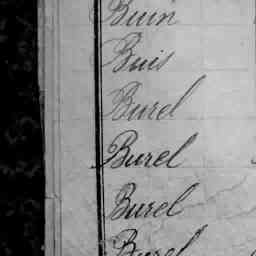 Buin
Buis
Burel
Burel
Burel
Burel